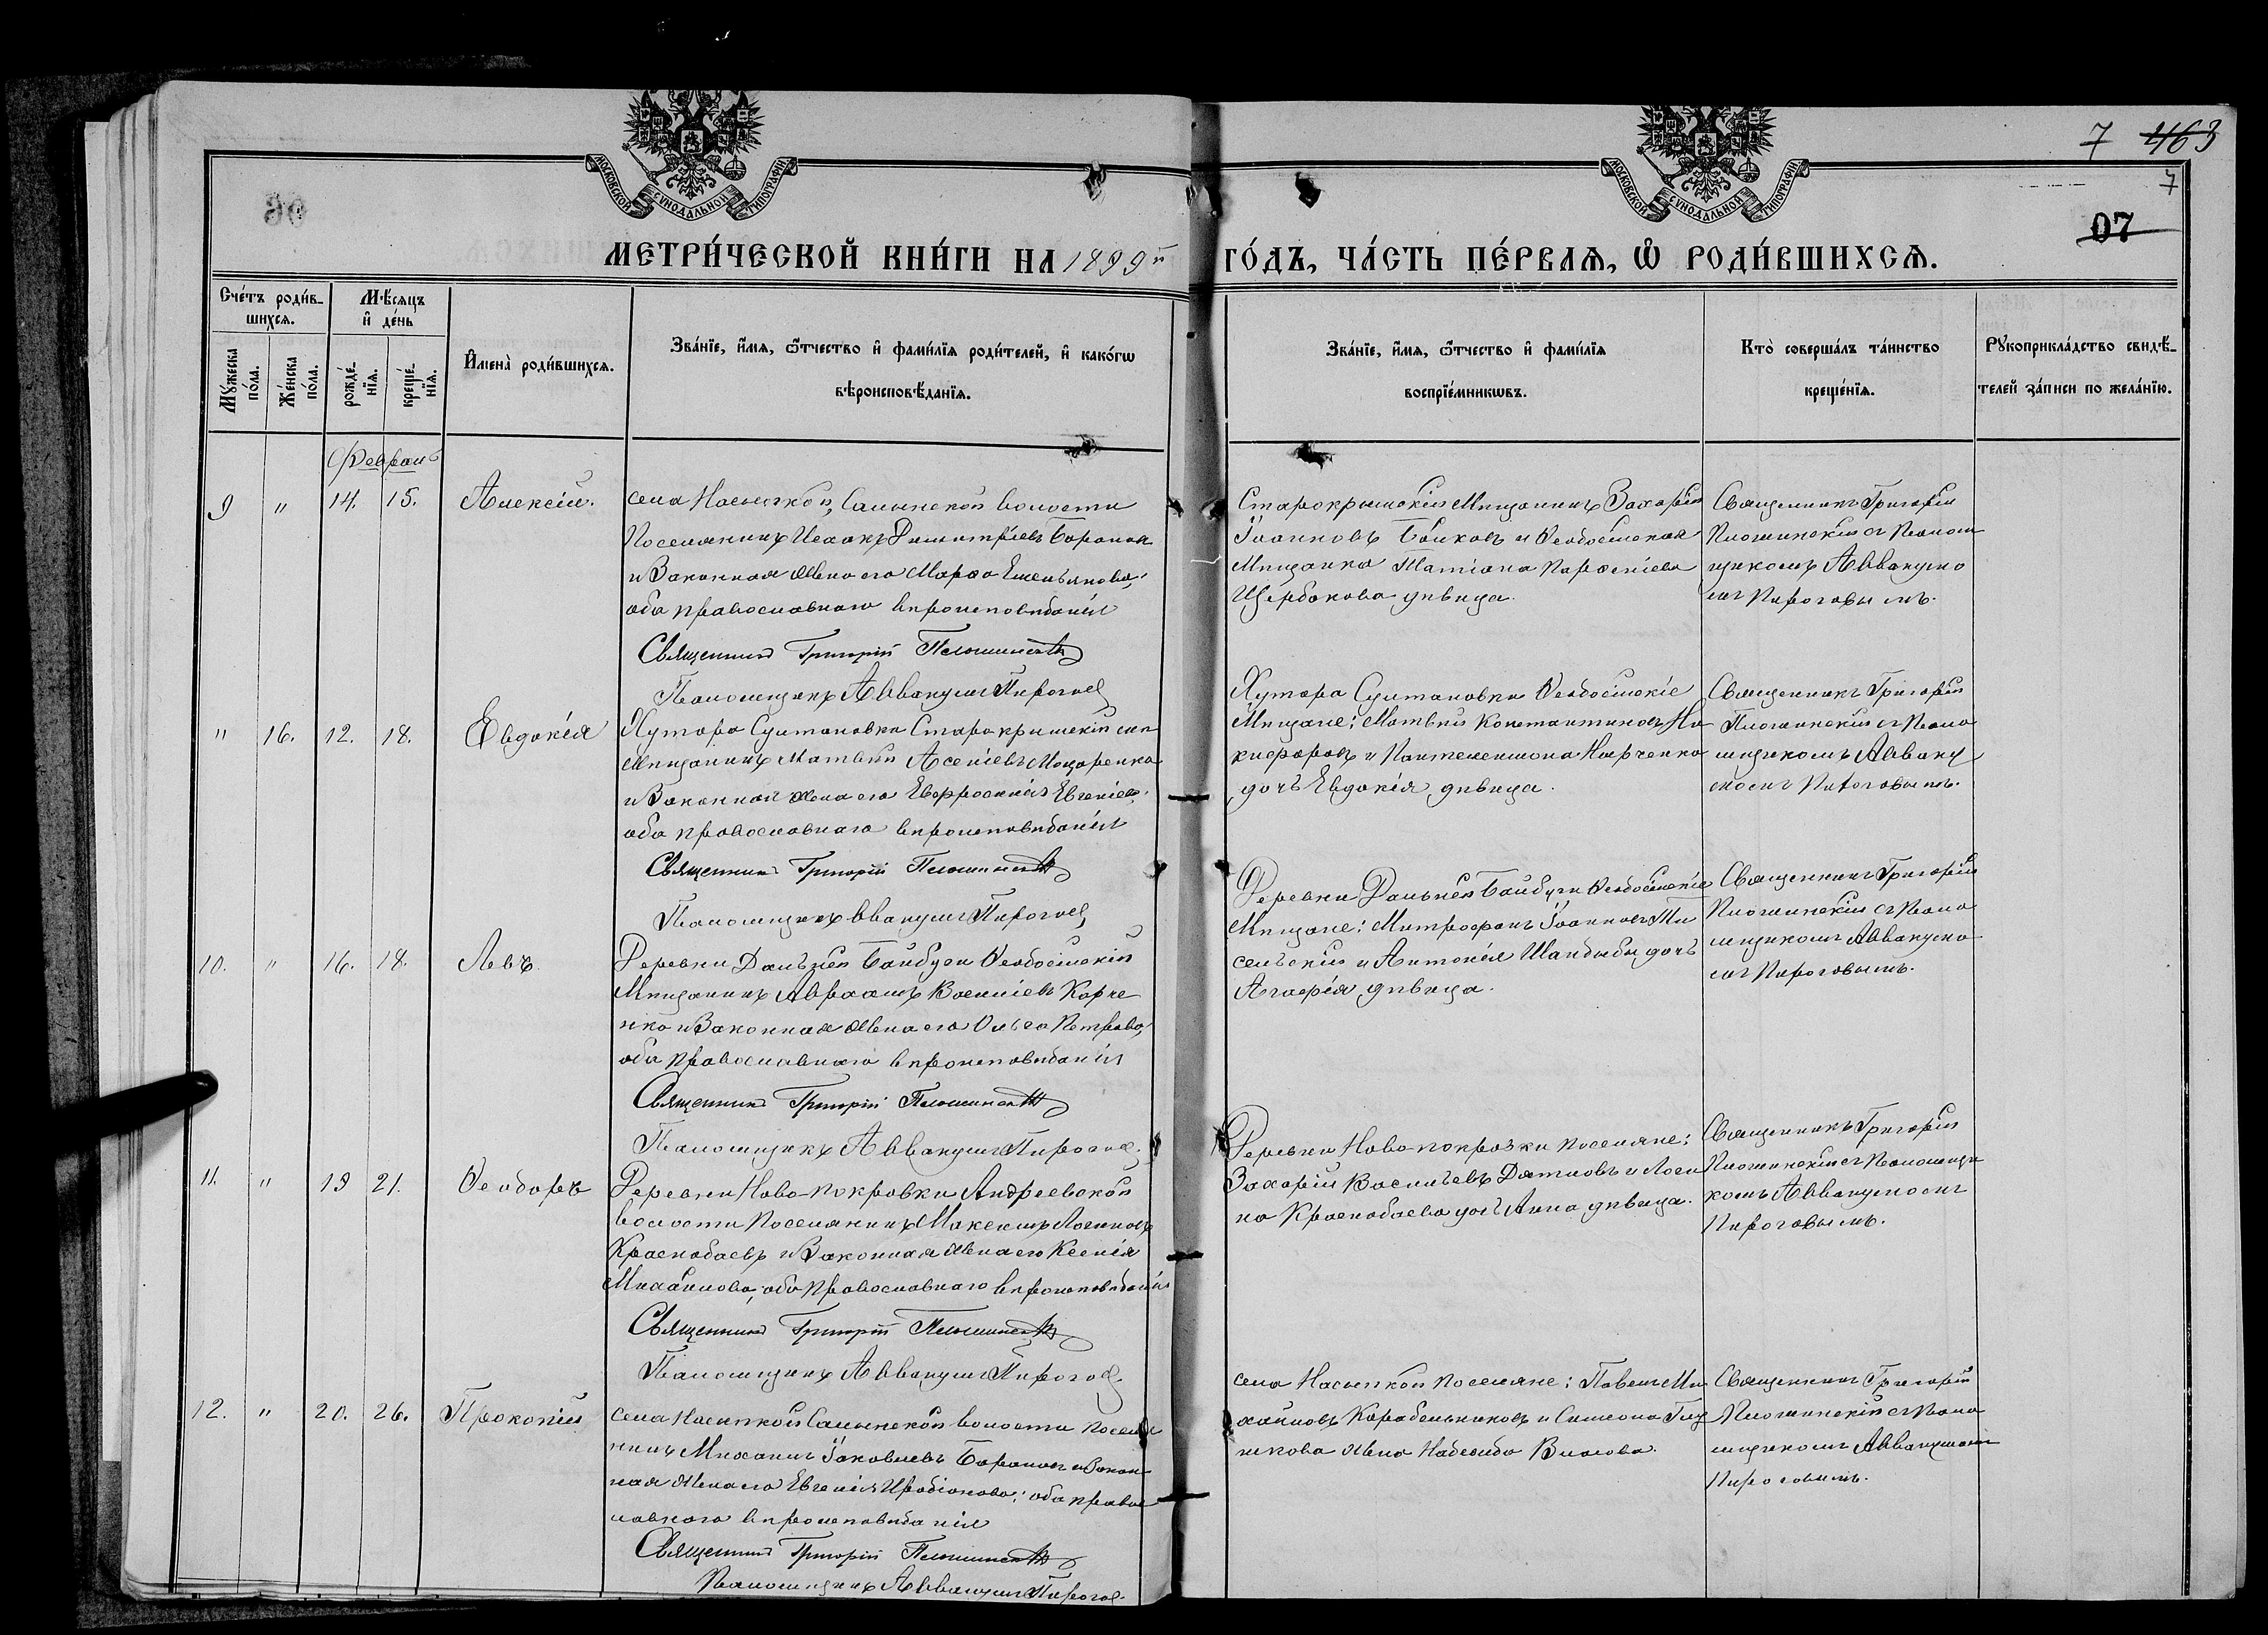 МОСКОВСКОЙ СУНОДАЛЬНОЙ ТИПОГРАФІИ
МОСКОВСКОЙ СУНОДАЛЬНОЙ ТИПОГРАФІИ
7 463
7
07
МЕТРИ́ЧЕСКОЙ КНИ́ГИ НА 1899й
ГО́ДЪ, ЧА́СТЬ ПЕ́РВАѦ, Ѽ РОДИ́ВШИХСѦ.
Сче́тъ роди́в-
шихсѧ.
Мꙋ́жеска
по́ла.
Же́нска
по́ла.
Мѣ́сѧцъ
и҆ де́нь
рожде́-
нїѧ.
креще́-
нїѧ.
И҆мена̀ роди́вшихсѧ.
Зва́нїе, и҆́мѧ, ѻ҆́тчество и҆ фами́лїѧ роди́телей, и҆ како́гѡ
вѣроисповѣ́данїѧ.
Зва́нїе, и҆́мѧ, ѻ҆́тчество и҆ фами́лїѧ
воспрїе́мникѡвъ.
Кто̀ соверша́лъ та́инство
креще́нїѧ.
Рꙋкоприкла́дство свидѣ́-
телей за́писи по жела́нїю.
Февраль
9 " 14. 15. Алексій.
села Насыпкой, Салынской волости
Поселянинъ Исаакъ Димитріевъ Баранов
и Законная жена его Марфа Емельянова;
оба православного вѣроисповѣданія
Священник Григорій
Псаломщикъ Аввакумъ Пирогов
Старокрымскій Мѣщанинъ Захарій
Іоанновъ Быковъ и Ѳеодосійская
Мѣщанка Татіана Парѳеніева
Щербакова дѣвица.
Священникъ Григорій
с Псалом
щикомъ Аввакумо
мъ Пироговымъ.
" 16. 12. 18. Евдокія
Хутора Султановки Старокрымскій
Мѣщанинъ Матвѣй Асеніевъ Мацаренко
и Законная жена его Евфросинія Евгеніева;
оба православнаго вѣроисповѣданія
Священник Григорій
Псаломщикъ Аввакумъ Пирогов
Хутора Султановки Ѳеодосійскіе
Мѣщане: Матвѣй Константиновъ Ни
кифоровъ и Пантелеимона Марченко
дочь Евдокія, дѣвица.
Священникъ Григорій
с Псало
мщикомъ Авваку
момъ Пироговымъ.
10. " 16. 18. Левъ.
Деревни Дальней Байбуги Ѳеодосійскій
Мѣщанинъ Авраамъ Васильевъ Корче
нко и Законная жена его Ольга Петрова;
оба православнаго вѣроисповѣданія
Священник Григорій
Псаломщикъ Аввакумъ Пирогов
Деревни Дальней Байбуги Ѳеодосійскіе
Мѣщане: Митрофанъ Іоанновъ Ти
сельскій и Антонія Шандыбы дочь
Агафія, дѣвица.
Священникъ Григорій
с Псало
мщикомъ Аввакумо
мъ Пироговымъ.
11. " 19 21. Ѳеодоръ
Деревни Ново-покровки Андреевской
волости Поселянинъ Максимъ Логиновъ
Краснобаевъ и Законная жена его Ксенія
Михайлова; оба православнаго вѣроисповѣданія
Священник Григорій
Псаломщикъ Аввакумъ Пирогов
Деревни Ново-покровки поселяне:
Захарій Васильевъ Дятловъ и Логи
на Краснобаева дочь Анна, дѣвица.
Священникъ Григорій
с Псаломщи
комъ Аввакумомъ
Пироговымъ.
12. " 20. 26. Прокопій
Села Насыпкой Салынской волости поселя
нинъ Михаилъ Іаковлевъ Барановъ и Закон-
ная жена его Евгенія Иродіонова; оба правос
лавного вѣроисповѣданія
Священник Григорій
Псаломщикъ Аввакумъ Пирогов
села Насыпкой поселяне: Павелъ Ми
хайловъ Карабельниковъ и Симеона Глу
шкова жена Надежда Власова.
Священникъ Григорій
с Псало
мщикомъ Аввакумомъ
Пироговымъ.